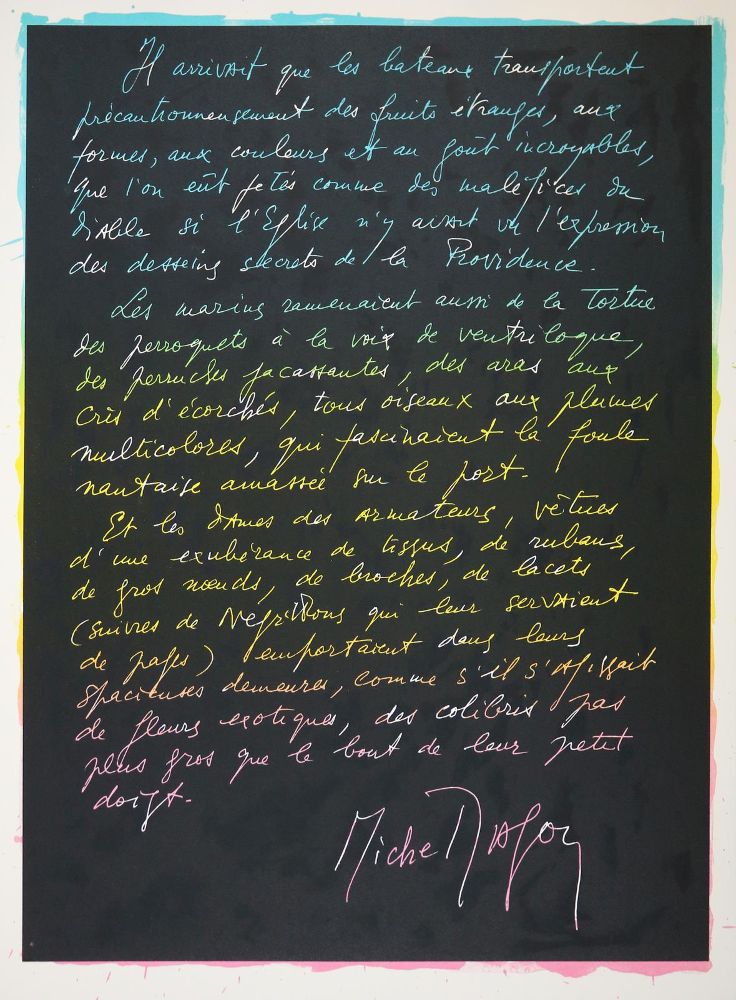 Il arrivait que les bateaux transportent
précautionneusement des fruits étranges, aux
formes, aux couleurs et au goût incroyables,
que l'on eût jetés comme des maléfices du
diable si l'Eglise n'y avait vu l'expression
des desseins secrets de la Providence.
Les marins ramenaient aussi de la Tortue
des perroquets à la voix de ventriloque,
des perruches jacassantes, des aras aux
cris d'écorchés, tous oiseaux aux plumes
multicolores, qui fascinaient la foule
nantaise amassée sur le port.
Et les dames des armateurs, vêtues
d'une exubérance de tissus, de rubans,
de gros nœuds, de broches, de lacets
(suivies de Negrillons qui leur servaient
de pages) emportaient dans leurs
spacieuses demeures, comme s'il s'agissait
de fleurs exotiques, des colibris pas
plus gros que le bout de leur petit
doigt.
Michel Ragon